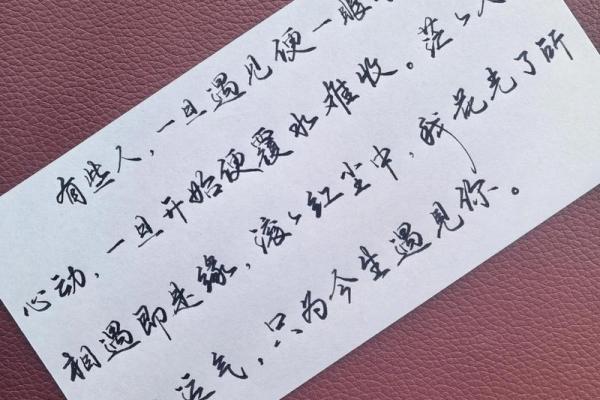 有些人，一旦遇见便一眼
心动，一旦开始便覆水难收。茫々人
相遇即是缘，滚々红尘中，我花光了所
运气，只为今生遇见你。